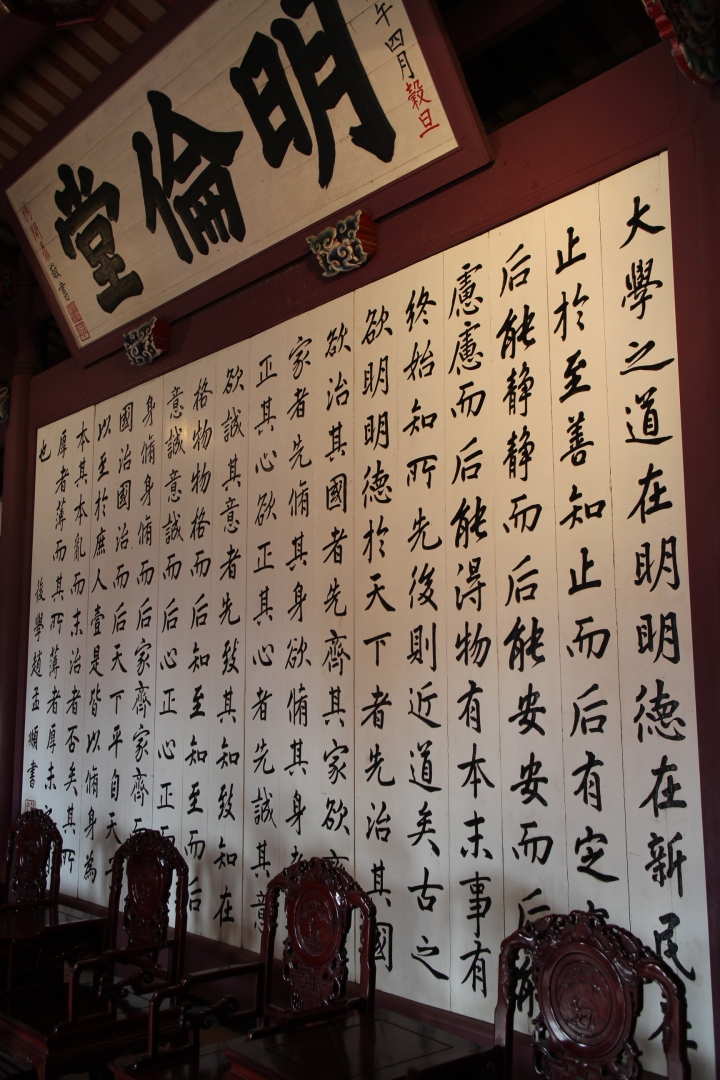 午四月穀旦
明倫堂
敬書
大學之道在明明德在新民在
止於至善知止而后有定
后能静静而后能安安而后能
慮慮而后能得物有本末事有
終始知所先後則近道矣古之
欲明明德於天下者先治其國
欲治其國者先齊其家欲齊
家者先脩其身欲脩其身者
正其心欲正其心者先誠其意
欲誠其意者先致其知致知在
格物物格而后知至知至而后
意誠意誠而后心正心正而
身脩身脩而后家齊家齊而
國治國治而后天下平自天子
以至於庶人壹是皆以脩身為
本其本亂而末治者否矣其所
厚者薄而其所薄者厚未之
也
後學趙孟頫書